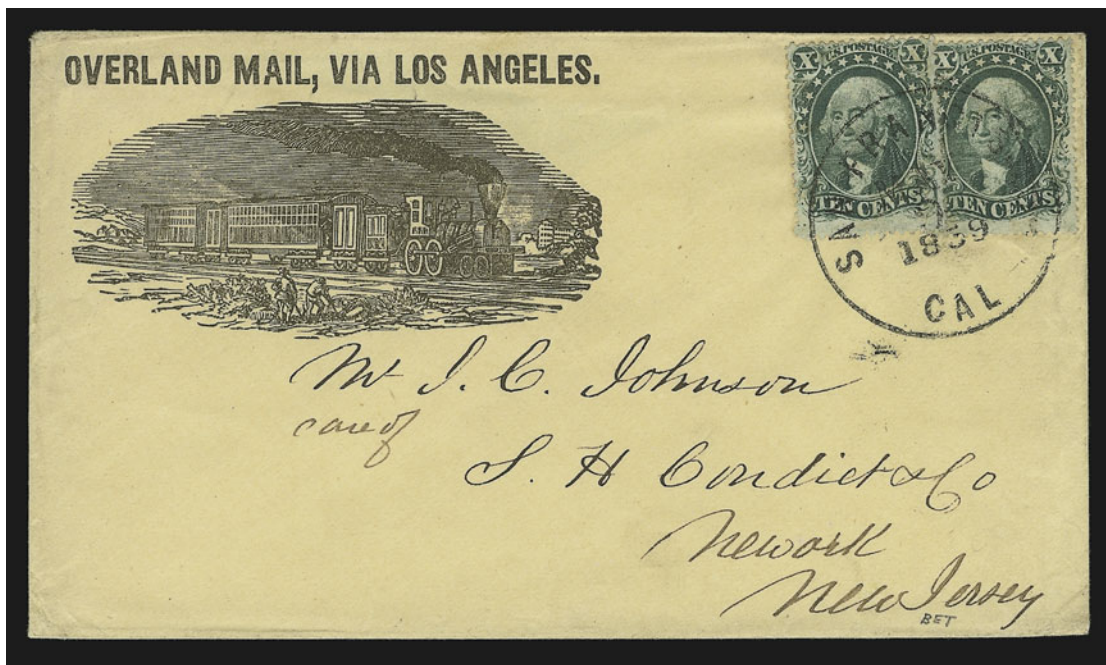 OVERLAND MAIL, VIA LOS ANGELES.
X U.S. POSTAGE X
TEN CENTS
X U.S. POSTAGE X
TEN CENTS
SAN FRAN
1859
CAL
Mr J. C. Johnson
care of
S. H Condict & Co
Newark
New Jersey
BET